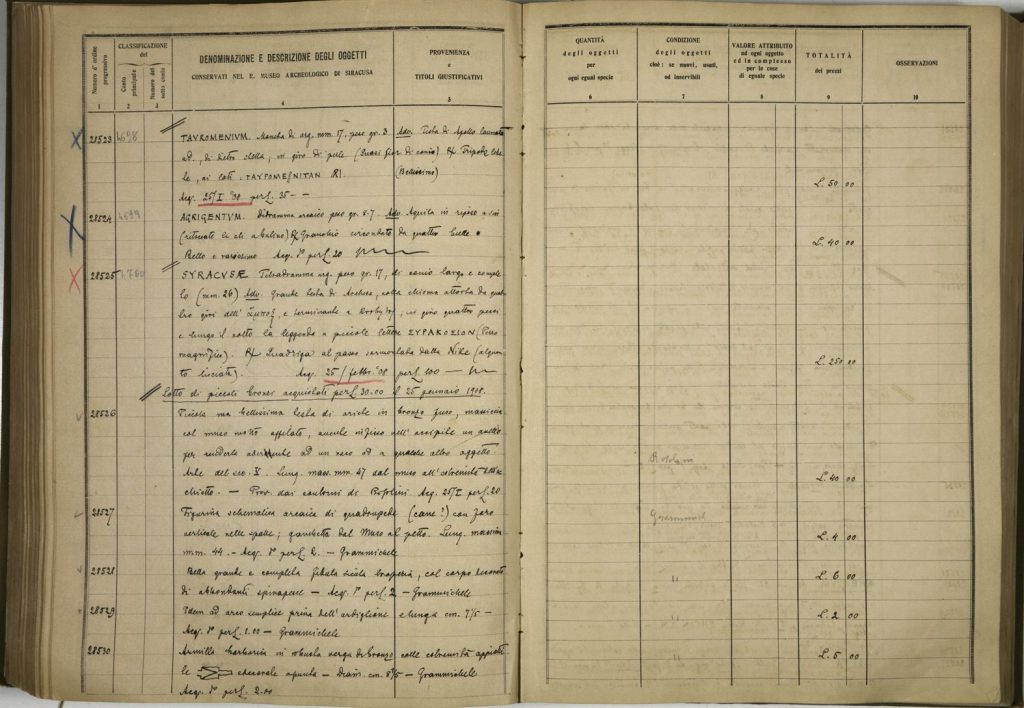 Numero d'ordine progressivo
CLASSIFICAZIONE del
Conto principale
Numero del sotto conto
DENOMINAZIONE E DESCRIZIONE DEGLI OGGETTI
CONSERVATI NEL R. MUSEO ARCHEOLOGICO DI SIRACUSA
PROVENIENZA
e
TITOLI GIUSTIFICATIVI
1 2 3 4 5
28523 4698 TAUROMENIUM. di arg. mm. 17, peso gr. 3. Adv. Testa di Apollo laureata
ad , di dietro stella, in giro di perle (Quasi fior di conio) R/ Tripode,
le, ai lati: (Bellissimo)
Acq. 25/I °08 per £. 35 —
28524 4699 AGRIGENTUM. Didramma arcaico peso gr. 8.7. Adv. Aquila in riposo a sin
R/ Granchio circondato da quattro
Bello e rarissimo Acq. d° per £. 20
28525 4700 SYRACUSÆ Tetradramma arg. peso gr. 17, di conio largo e comple
to (mm. 26) Adv. Grande testa di Arethusa, colla chioma attorta da quat
tro giri dell' , e terminante a , in giro quattro pesci
e lungo il collo la leggenda a piccole lettere ΣYPAKOSION (Pezzo
magnifico). R/ Quadriga al passo sormontata dalla Nike (alquan
to lisciata). Acq. 25/febbr. °08 per £. 100 —
Lotto di piccoli bronzi acquistati per £. 30.00 il 25 gennaio 1908.
28526 Piccola ma bellissima testa di ariete in bronzo fuso, massiccia
col muso molto affilato, un anello
per renderla aderente ad un vaso od a qualche altro oggetto.
Arte del sec. V. Lung. mass. mm. 47 dal muso all'estremità
— Prov. dai contorni di Rosolini. Acq. 25/I per £. 20
28527 Figurina schematica arcaica di quadrupede (cane?) con foro
verticale nelle spalle; dal muso al petto. Lung. massima
mm. 44. — Acq. d° per £. 2. — Grammichele
28528 Bella grande e completa fibula sicula , col corpo decorato
di abbondanti spinapesce — Acq. d° per £. 2 — Grammichele
28529 Idem ad arco semplice priva dell'ardiglione e lunga cm. 7½ —
Acq. d° per £. 1.00 — Grammichele
28530 Armilla in robusta verga di bronzo colle estremità appiatti
le — Diam. cm. 8½ — Grammichele
Acq. d° per £. 2.00
QUANTITÀ
degli oggetti
per
ogni egual specie
CONDIZIONE
degli oggetti
cioè: se nuovi, usati,
od inservibili
VALORE ATTRIBUITO
ad ogni oggetto
ed in complesso
per le cose
di eguale specie
TOTALITÀ
dei prezzi
OSSERVAZIONI
6 7 8 9 10
£. 50 00
£. 40 00
£. 250 00
Rosolini
£. 40 00
Grammichele
£. 4 00
" £. 6 00
" £. 2 00
" £. 5 00